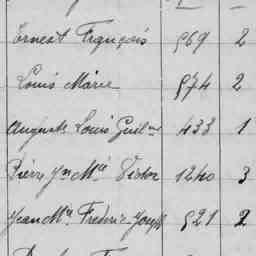 Ernest François 969 2
Louis Marie 974 2
Auguste Louis Guilme 433 1
Pierre Jn Mie Victor 1240 3
Jean Mie Frédéric Joseph 921 2